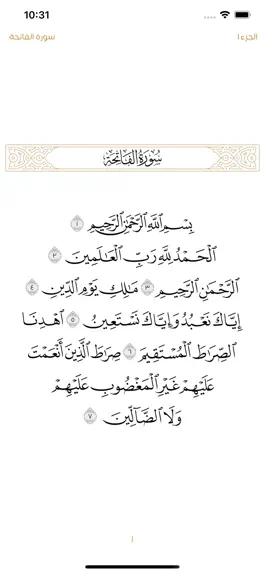 10:31
سورة الفاتحة
الجزء ١
سُورَةُ الْفَاتِحَةِ
بِسْمِ اللَّهِ الرَّحْمَٰنِ الرَّحِيمِ ١
الْحَمْدُ لِلَّهِ رَبِّ الْعَالَمِينَ ٢
الرَّحْمَٰنِ الرَّحِيمِ ٣ مَالِكِ يَوْمِ الدِّينِ ٤
إِيَّاكَ نَعْبُدُ وَإِيَّاكَ نَسْتَعِينُ ٥ اهْدِنَا
الصِّرَاطَ الْمُسْتَقِيمَ ٦ صِرَاطَ الَّذِينَ أَنْعَمْتَ
عَلَيْهِمْ غَيْرِ الْمَغْضُوبِ عَلَيْهِمْ
وَلَا الضَّالِّينَ ٧
١